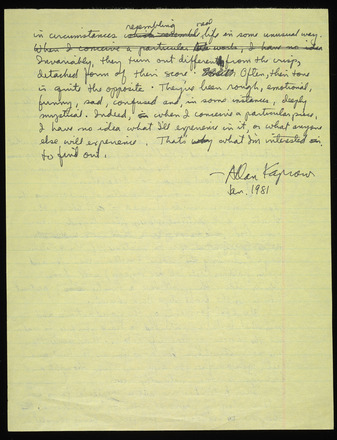 resembling real
in circumstances which resemble life in some unusual way.
When I conceive a particular work, I have no idea
Invariably, they turn out differently from the crisp,
detached form of their score. Often, their tone
is quite the opposite. They've been rough, emotional,
funny, sad, confused and, in some instances, deeply
mystical. Indeed, when I conceive a particular piece,
I have no idea what I'll experience in it, or what anyone
else will experience. That's what I'm interested in
to find out.
— Allan Kaprow
Jan. 1981